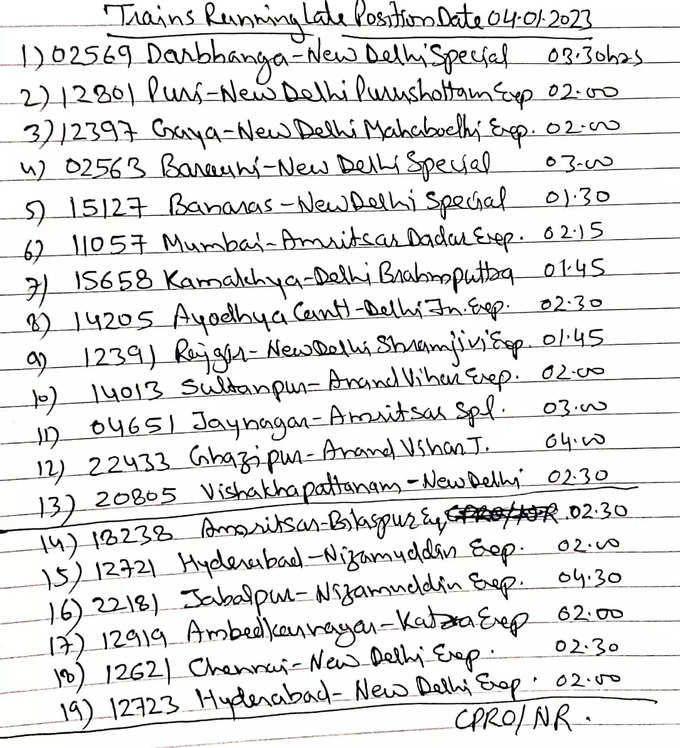 Trains Running Late Position Date 04.01.2023
1) 02569 Darbhanga-New Delhi Special 03.30hrs
2) 12801 Puri-New Delhi Purushottam Exp 02.00
3) 12397 Gaya-New Delhi Mahabodhi Exp. 02.00
4) 02563 Barauni-New Delhi Special 03.00
5) 15127 Banaras-New Delhi Special 01.30
6) 11057 Mumbai-Amritsar Dadar Exp. 02.15
7) 15658 Kamakhya-Delhi Brahmputra 01.45
8) 14205 Ayodhya Cantt-Delhi Jn. Exp. 02.30
9) 12391 Rajgir-New Delhi Shramjivi Exp. 01.45
10) 14013 Sultanpur-Anand Vihar Exp. 02.00
11) 04651 Jaynagar-Amritsar Spl. 03.00
12) 22433 Ghazipur-Anand Vihar T. 04.00
13) 20805 Vishakhapattanam-New Delhi 02.30
14) 18238 Amritsar-Bilaspur Ex, 02.30
15) 12721 Hyderabad-Nizamuddin Exp. 02.00
16) 22181 Jabalpur-Nizamuddin Exp. 04.30
17) 12919 Ambedkarnagar-Katra Exp 02.00
18) 12621 Chennai-New Delhi Exp. 02.30
19) 12723 Hyderabad-New Delhi Exp. 02.00
CPRO/NR.